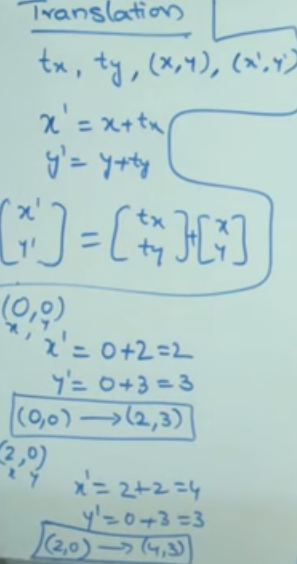 Translation
tx, ty, (x,y), (x',y')
x' = x+tx
y' = y+ty
[x' y'] = [tx ty] + [x y]
(0,0)
x, y
x' = 0+2=2
y' = 0+3=3
(0,0) → (2,3)
(2,0)
x y
x' = 2+2=4
y' = 0+3=3
(2,0) → (4,3)